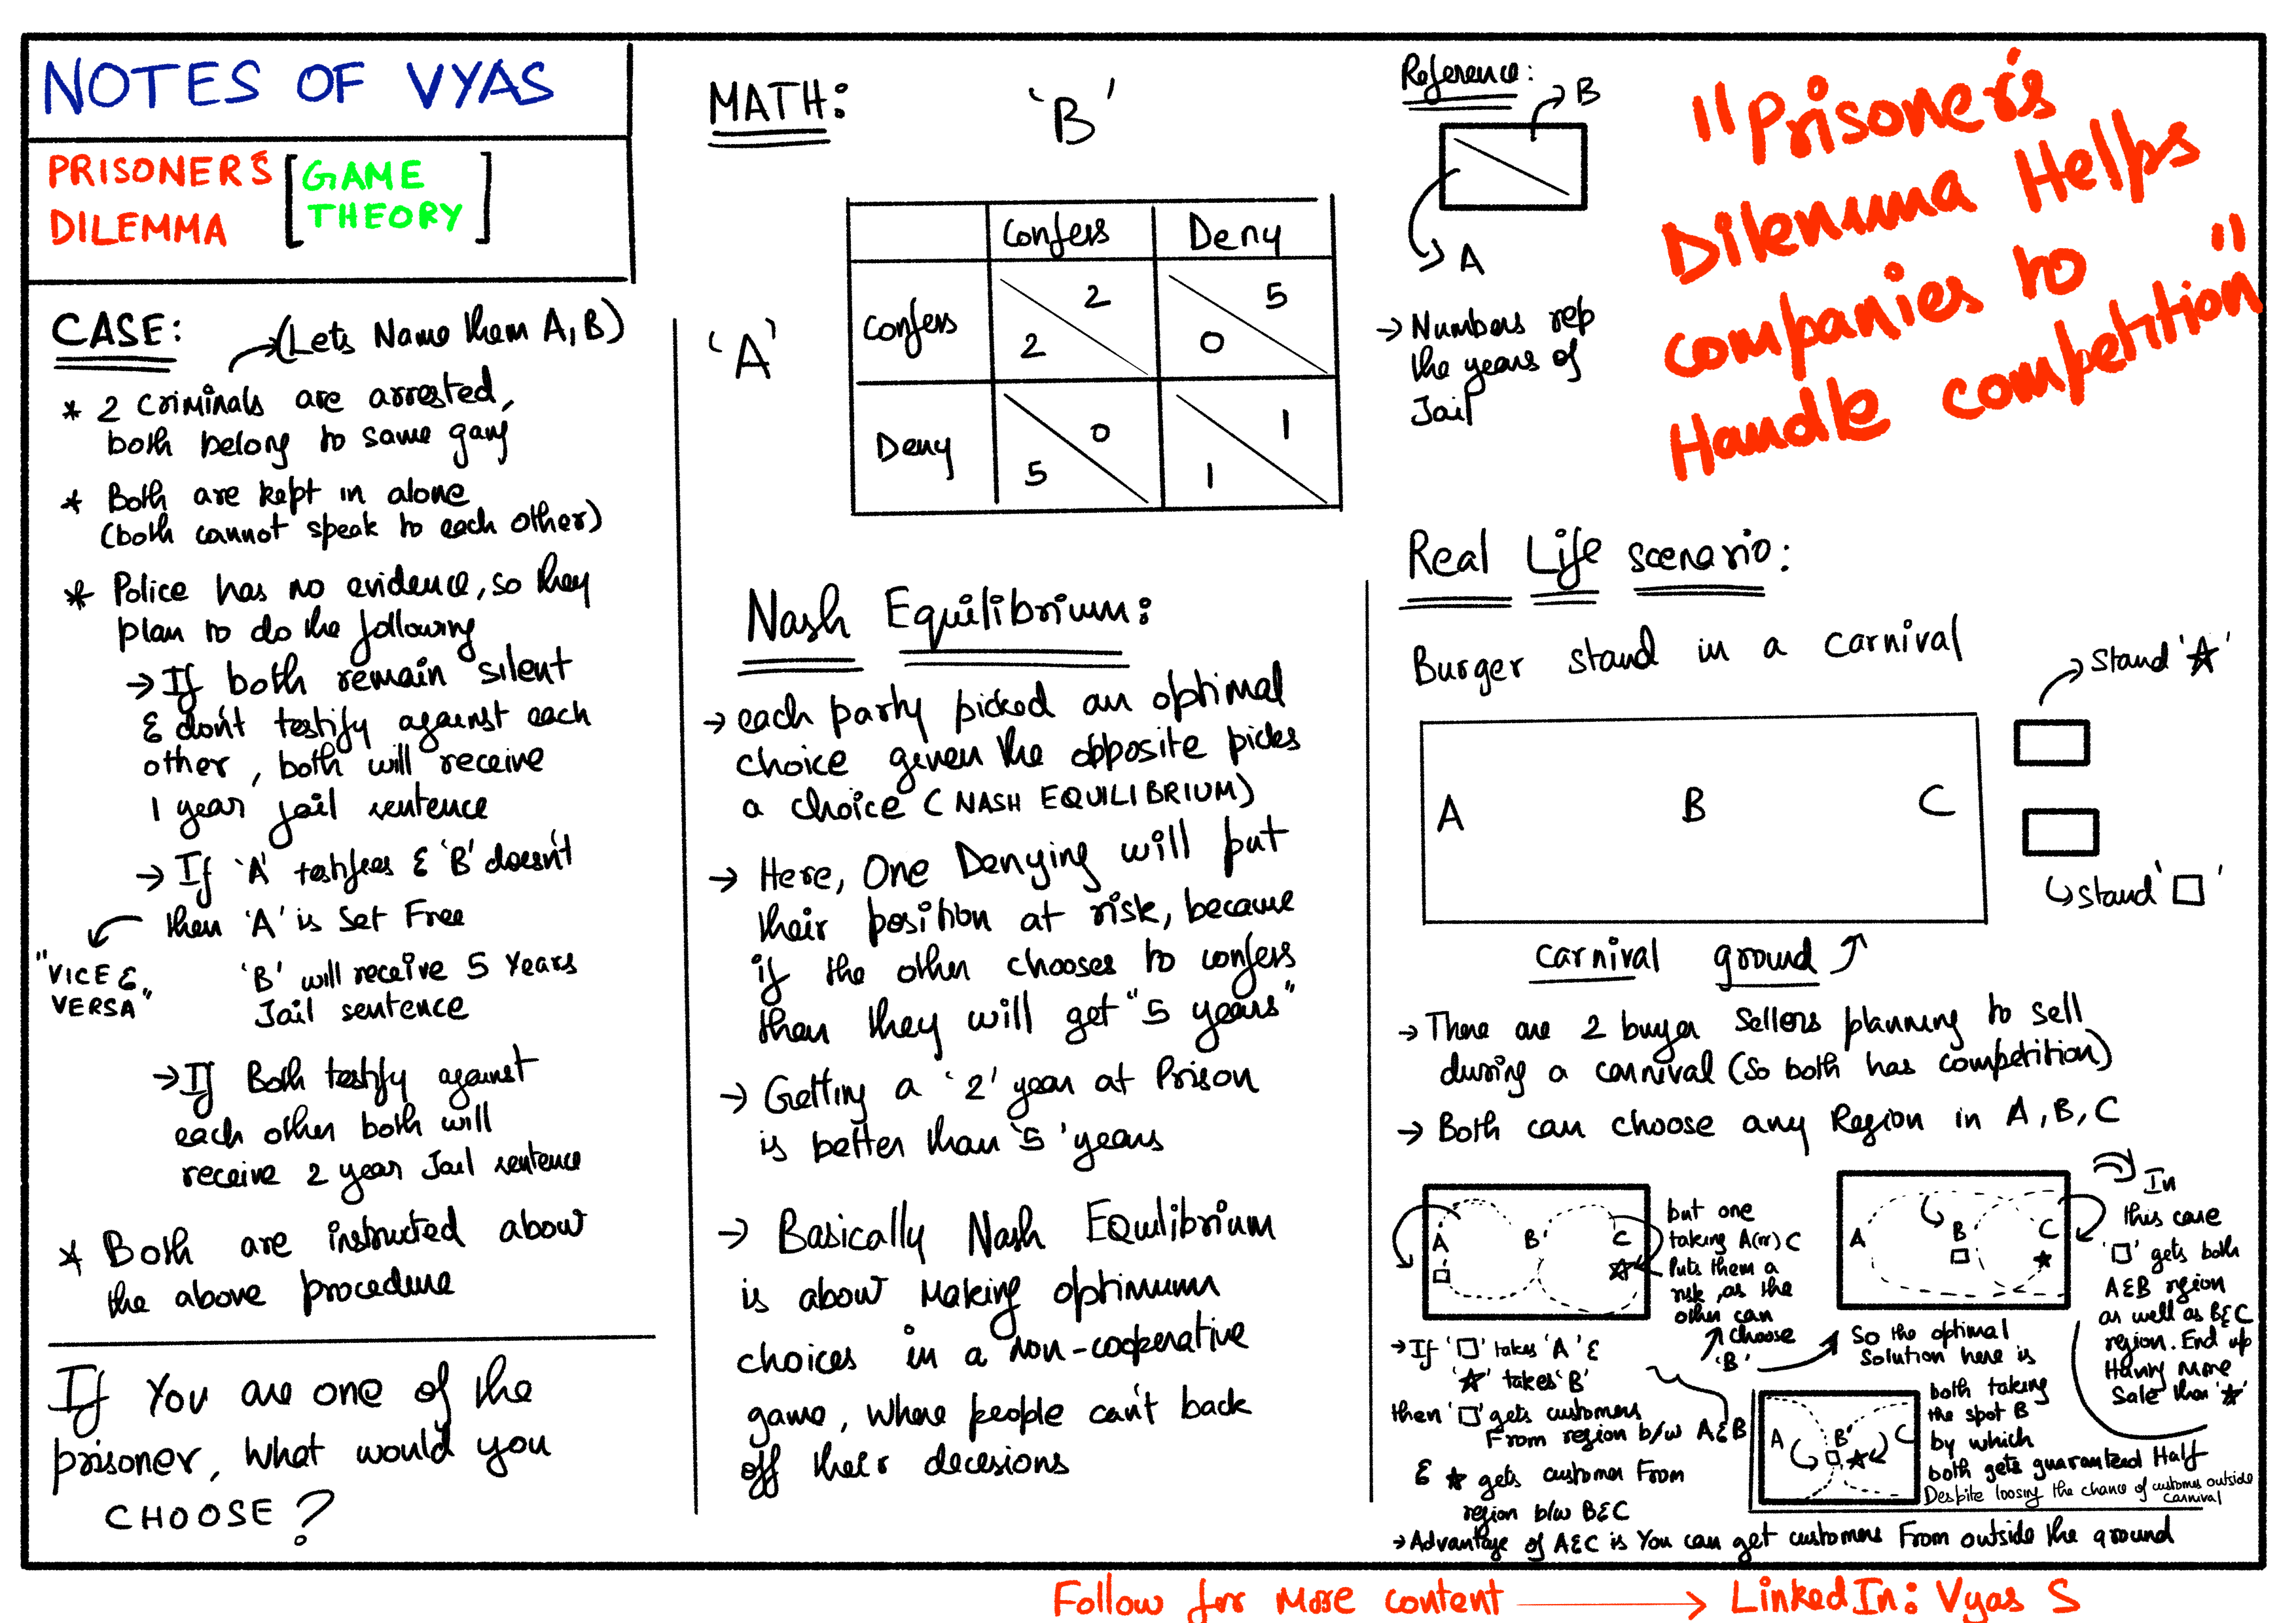 NOTES OF VYAS
PRISONER'S
DILEMMA
[GAME
THEORY]
CASE:
→(Lets Name them A, B)
* 2 Criminals are arrested,
both belong to same gang
* Both are kept in alone
(both cannot speak to each other)
* Police has no evidence, so they
plan to do the following
→ If both remain silent
& don't testify against each
other, both will receive
1 year jail sentence
→ If 'A' testifies & 'B' doesn't
then 'A' is Set Free
"VICE &
VERSA"
'B' will receive 5 Years
Jail sentence
→ If Both testify against
each other both will
receive 2 year Jail sentence
* Both are instructed about
the above procedure
If You are one of the
prisoner, What would you
CHOOSE?
MATH:
'B'
'A'
Confess Deny
Confess 2 2 5 0
Deny 0 5 1 1
Nash Equilibrium:
→ each party picked an optimal
choice given the opposite picks
a choice (NASH EQUILIBRIUM)
→ Here, One Denying will put
their position at risk, because
if the other chooses to confess
then they will get "5 years"
→ Getting a '2' year at Prison
is better than '5' years
→ Basically Nash Equilibrium
is about Making optimum
choices in a non-cooperative
game, where people can't back
off their decesions
Reference:
B
A
→ Numbers rep
the years of
Jail
"Prisoner's
Dilemma Helps
companies to
Handle competition"
Real Life scenario:
Burger stand in a carnival
Stand '☆'
A B C
Stand '□'
carnival ground
→ There are 2 buyer Sellers planning to sell
during a carnival (So both has competition)
→ Both can choose any Region in A, B, C
A B C
but one
taking A(or) C
Puts them a
risk, as the
other can
choose
'B'
→ If '□' takes 'A' &
'☆' takes 'B'
then '□' gets customers
From region b/w A&B
& ★ gets customer From
region b/w B&C
A B C
In
this case
'□' gets both
A&B region
as well as B&C
region. End up
Having More
Sale than '☆'
So the optimal
Solution here is
both taking
the spot B
by which
both gets guaranteed Half
Despite loosing the chance of customer outside
carnival
A B C
→ Advantage of A&C is You can get customers From outside the ground
Follow for More content → LinkedIn: Vyas S